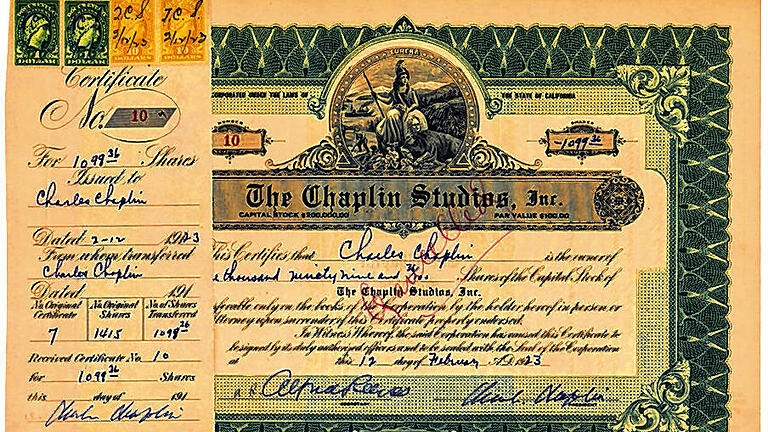 1 DOLLAR
1 DOLLAR
3/12/23
3/12/23
Certificate
No. 10
For 1099 Shares
Issued to
Charles Chaplin
Dated 2-12 1923
From whom transferred
Charles Chaplin
Dated 191
No. Original Certificate
No. Original Shares
No. of Shares Transferred
7
1415
1098
Received Certificate No. 10
for 1099 Shares
this day of 191
Charles Chaplin
EUREKA
INCORPORATED UNDER THE LAWS OF THE STATE OF CALIFORNIA
NUMBER
10
SHARES
1099
The Chaplin Studios, Inc.
CAPITAL STOCK $200,000.00
PAR VALUE $100.00
Cancelled
This Certifies that Charles Chaplin is the owner of
thousand ninety nine and Shares of the Capital Stock of
The Chaplin Studios, Inc.
transferable only on the books of the Corporation by the holder hereof in person or
Attorney upon surrender of this Certificate properly endorsed.
In Witness Whereof, the said Corporation has caused this Certificate to
be signed by its duly authorized officers and to be sealed with the Seal of the Corporation
at this 12 day of February A.D. 1923
Alf Reeves
Charles Chaplin